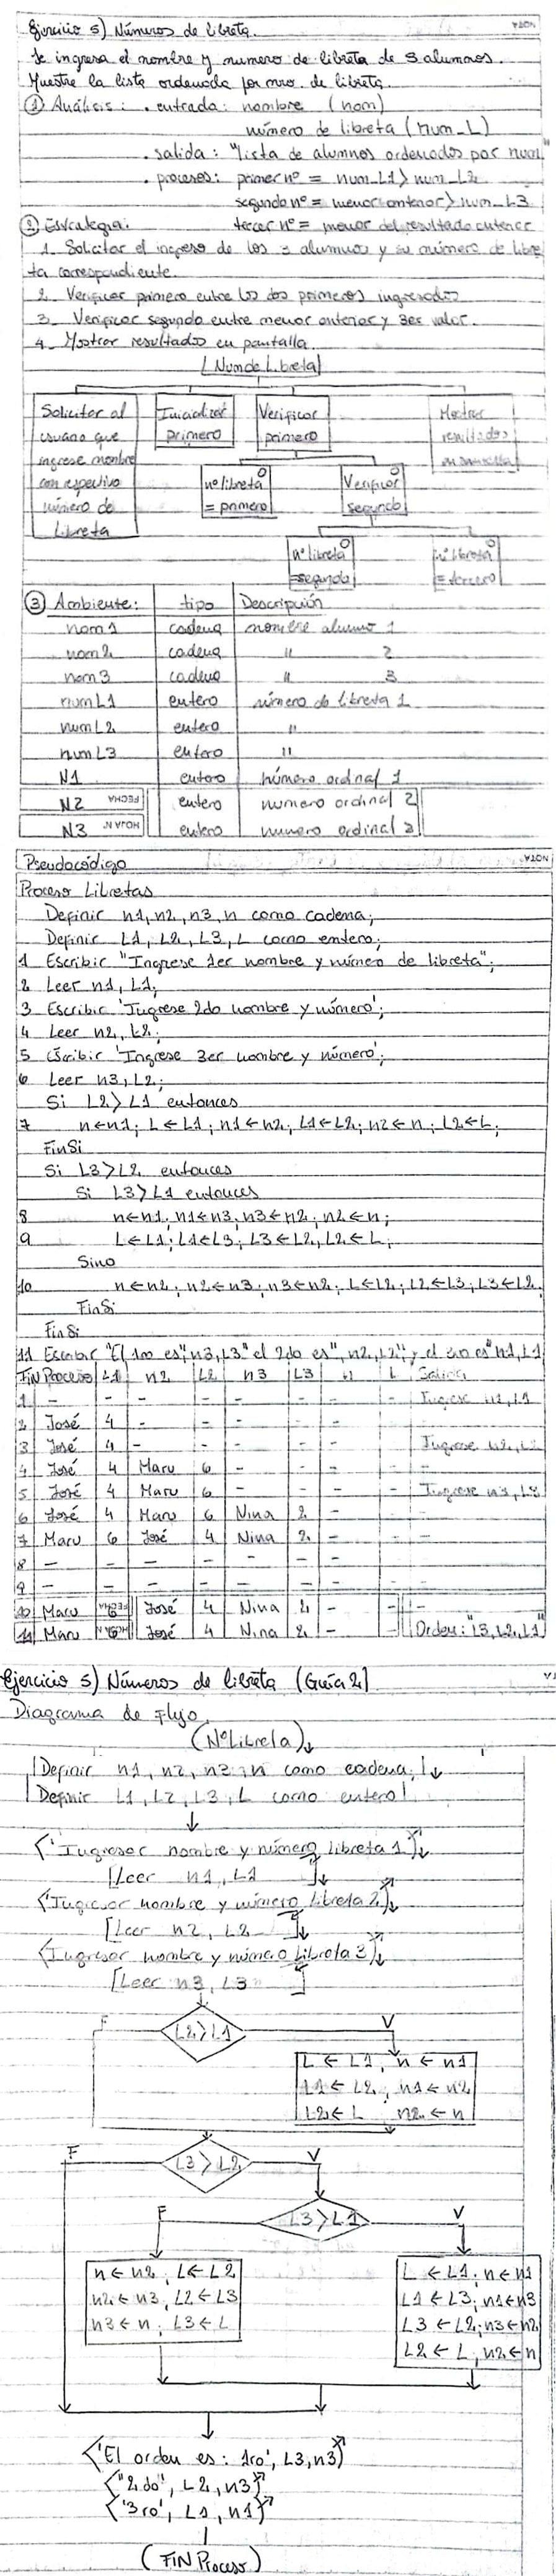 Ejercicio 5) Números de libreta.
Se ingresa el nombre y numero de libreta de 3 alumnos.
Muestre la lista ordenada por nro. de libreta.
① Análisis: . entrada: nombre (nom)
número de libreta (num_L)
. salida: "lista de alumnos ordenados por num"
. procesos: primer nº = num_L1 > num_L2
segundo nº = menor anterior > num_L3
② Estrategia: tercer nº = menor del resultado anterior
1. Solicitar el ingreso de los 3 alumnos y su número de libre
ta correspondiente.
2. Verificar primero entre los dos primeros ingresados
3. Verificar segundo entre menor anterior y 3er valor.
4. Mostrar resultados en pantalla.
Num de Libreta
Solicitar al usuario que ingrese nombre con respectivo número de Libreta
Inicializar primero
Verificar primero
Mostrar resultados en pantalla
nº libreta = primero
Verificar segundo
nº libreta = segundo
nº libreta = tercero
③ Ambiente: tipo Descripción
nom1 cadena nombre alumno 1
nom2 cadena " 2
nom3 cadena " 3
numL1 entero número de libreta 1
numL2 entero "
numL3 entero "
N1 entero número ordinal 1
N2 FECHA entero numero ordinal 2
N3 HOJA N. entero numero ordinal 3
Pseudocódigo NOTA
Proceso Libretas
Definir n1, n2, n3, n como cadena;
Definir L1, L2, L3, L como entero;
1 Escribir "Ingrese 1er nombre y número de libreta";
2 Leer n1, L1;
3 Escribir 'Ingrese 2do nombre y número';
4 Leer n2, L2;
5 Escribir 'Ingrese 3er nombre y número';
6 Leer n3, L2;
Si L2 > L1 entonces
7 n←n1; L←L1; n1←n2; L1←L2; n2←n; L2←L;
FinSi
Si L3 > L2 entonces
Si L3 > L1 entonces
8 n←n1; n1←n3; n3←n2; n2←n;
9 L←L1; L1←L3; L3←L2, L2←L;
Sino
10 n←n2; n2←n3; n3←n2; L←L2; L2←L3; L3←L2
FinSi
FinSi
11 Escribir "El 1ro es", n3, L3 " el 2do es", n2, L2 "; y el 3ro es" n1, L1
FIN Proceso L1 n2 L2 n3 L3 n L Salida
1 - - - - - - - - Ingrese n1, L1
2 José 4 - - - - - -
3 José 4 - - - - - - Ingrese n2, L2
4 José 4 Maru 6 - - - -
5 José 4 Maru 6 - - - - Ingrese n3, L3
6 José 4 Maru 6 Nina 2 - -
7 Maru 6 José 4 Nina 2 - -
8 - - - - - - - -
9 - - - - - - - -
10 Maru 6 José 4 Nina 2 - - -
11 Maru 6 José 4 Nina 2 - - Orden: "L3, L2, L1"
Ejercicio 5) Números de libreta (Guía 2)
Diagrama de Flujo
(Nº Libreta)
Definir n1, n2, n3, n como cadena;
Definir L1, L2, L3, L como entero
'Ingresar nombre y número libreta 1'
Leer n1, L1
'Ingresar nombre y número libreta 2'
Leer n2, L2
'Ingresar nombre y número libreta 3'
Leer n3, L3
F L2 > L1 V
L ← L1, n ← n1
L1 ← L2, n1 ← n2
L2 ← L n2 ← n
F L3 > L2 V
F L3 > L1 V
n ← n2, L ← L2
n2 ← n3, L2 ← L3
n3 ← n, L3 ← L
L ← L1; n ← n1
L1 ← L3; n1 ← n3
L3 ← L2; n3 ← n2
L2 ← L, n2 ← n
'El orden es: 1ro', L3, n3
"2do", L2, n3
'3ro', L1, n1
(FIN Proceso)